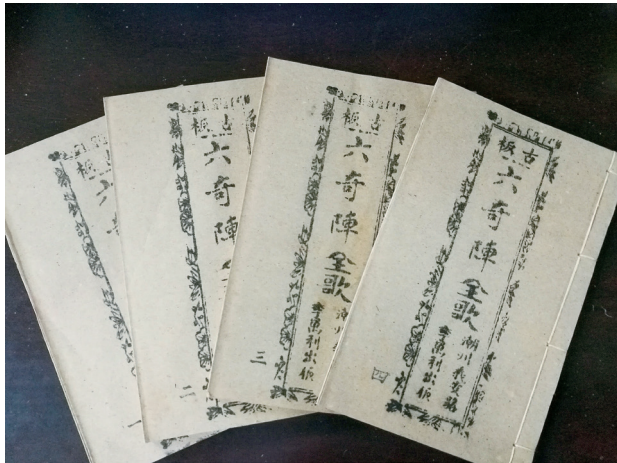 古板
六奇陣全歌
潮州義安路
李萬利出版
四
古板
六奇陣全歌
潮州
李萬利出版
三
古板
六奇陣
二
板
六
一